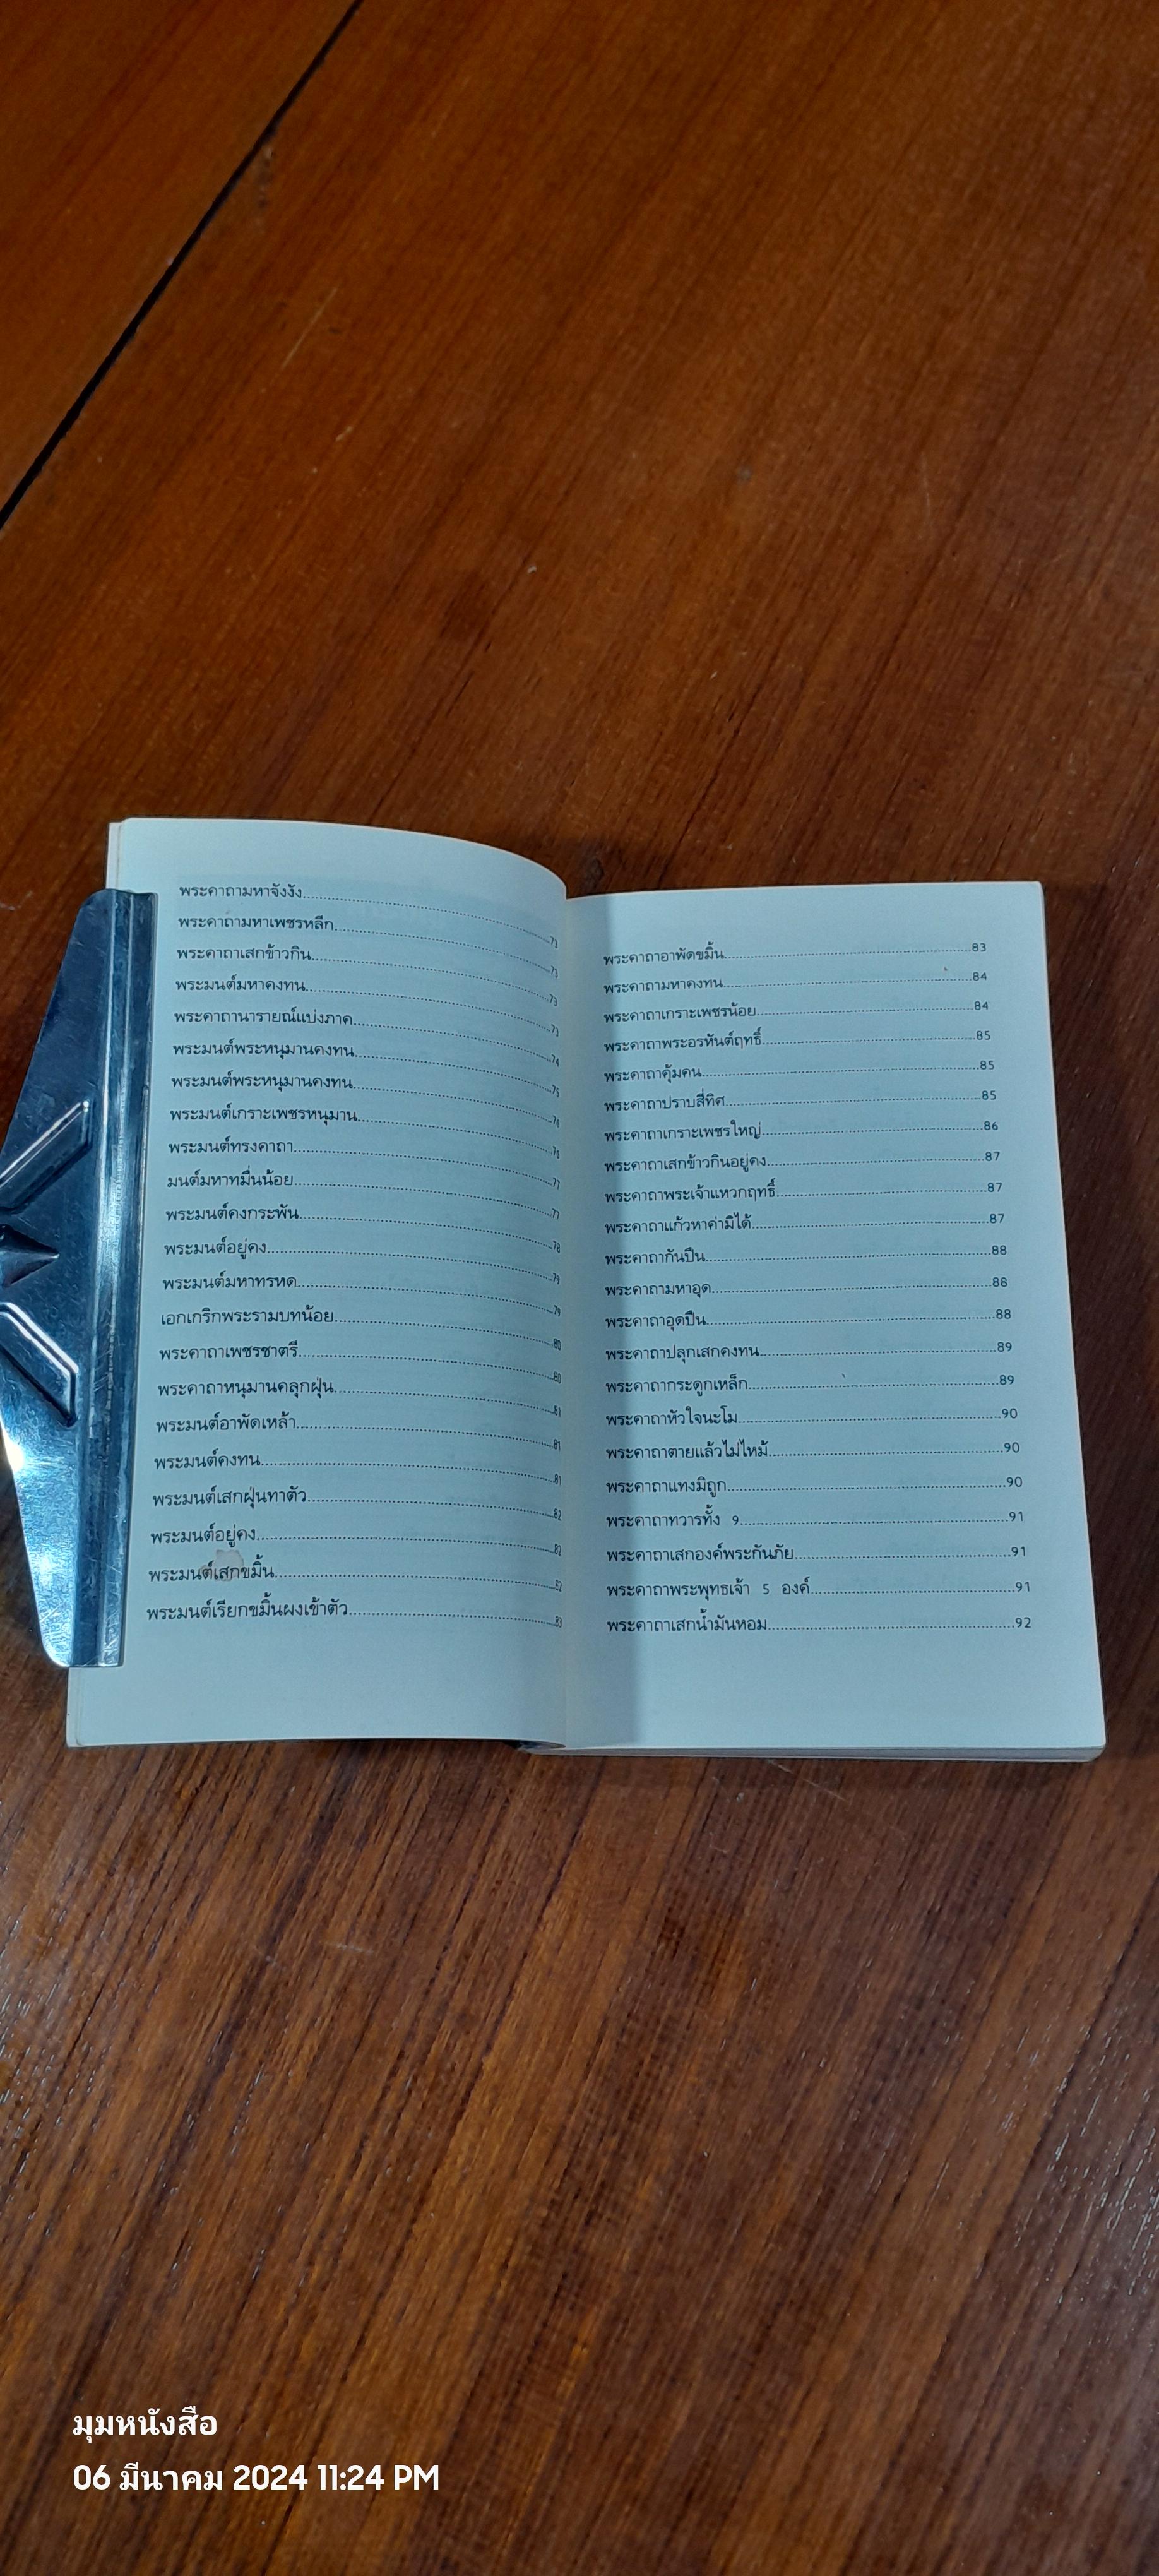 พระคาถามหาจังงัง............73
พระคาถามหาเพชรหลีก............73
พระคาถาเสกข้าวกิน............73
พระมนต์มหาคงทน............73
พระคาถานารายณ์แบ่งภาค............74
พระมนต์พระหนุมานคงทน............75
พระมนต์พระหนุมานคงทน............76
พระมนต์เกราะเพชรหนุมาน............76
พระมนต์ทรงคาถา............77
มนต์มหาทมื่นน้อย............77
พระมนต์คงกระพัน............78
พระมนต์อยู่คง............79
พระมนต์มหาทรหด............79
เอกเกริกพระรามบทน้อย............80
พระคาถาเพชรชาตรี............80
พระคาถาหนุมานคลุกฝุ่น............81
พระมนต์อาพัดเหล้า............81
พระมนต์คงทน............81
พระมนต์เสกฝุ่นทาตัว............82
พระมนต์อยู่คง............82
พระมนต์เสกขมิ้น............82
พระมนต์เรียกขมิ้นผงเข้าตัว............83
พระคาถาอาพัดขมิ้น............83
พระคาถามหาคงทน............84
พระคาถาเกราะเพชรน้อย............84
พระคาถาพระอรหันต์ฤทธิ์............85
พระคาถาคุ้มคน............85
พระคาถาปราบสี่ทิศ............85
พระคาถาเกราะเพชรใหญ่............86
พระคาถาเสกข้าวกินอยู่คง............87
พระคาถาพระเจ้าแหวกฤทธิ์............87
พระคาถาแก้วหาค่ามิได้............87
พระคาถากันปืน............88
พระคาถามหาอุด............88
พระคาถาอุดปืน............88
พระคาถาปลุกเสกคงทน............89
พระคาถากระดูกเหล็ก............89
พระคาถาหัวใจนะโม............90
พระคาถาตายแล้วไม่ไหม้............90
พระคาถาแทงมิถูก............90
พระคาถาทวารทั้ง 9............91
พระคาถาเสกองค์พระกันภัย............91
พระคาถาพระพุทธเจ้า 5 องค์............91
พระคาถาเสกน้ำมันหอม............92
มุมหนังสือ
06 มีนาคม 2024 11:24 PM